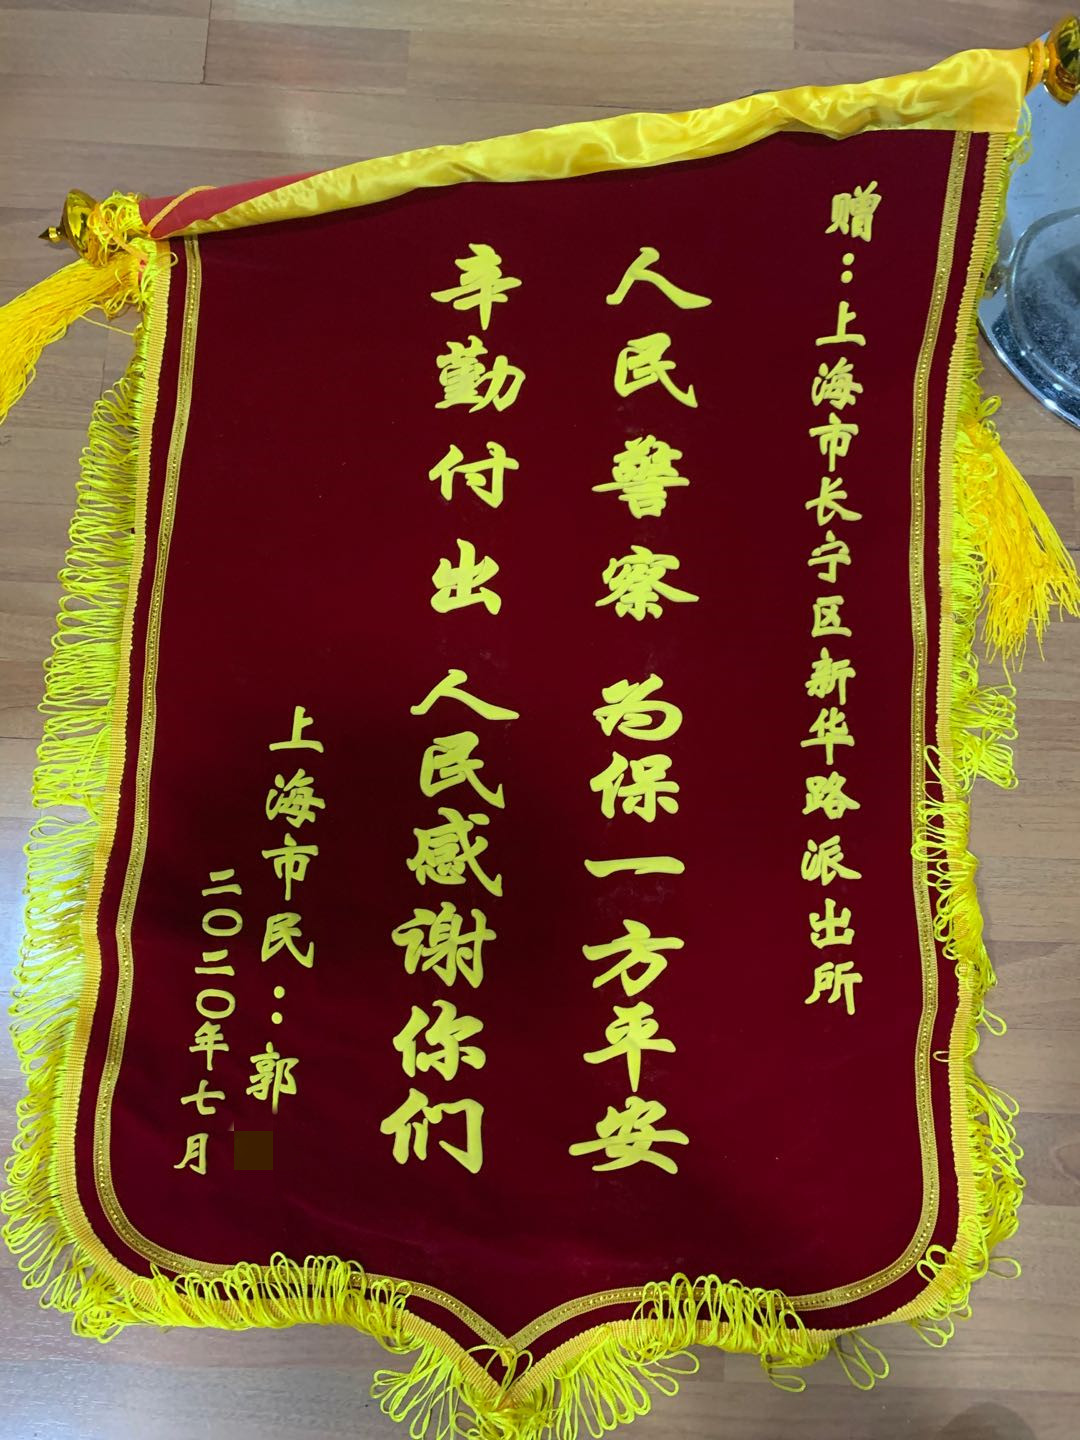 赠：上海市长宁区新华路派出所
人民警察 为保一方平安
辛勤付出 人民感谢你们
上海市民：郭
二〇二〇年七月